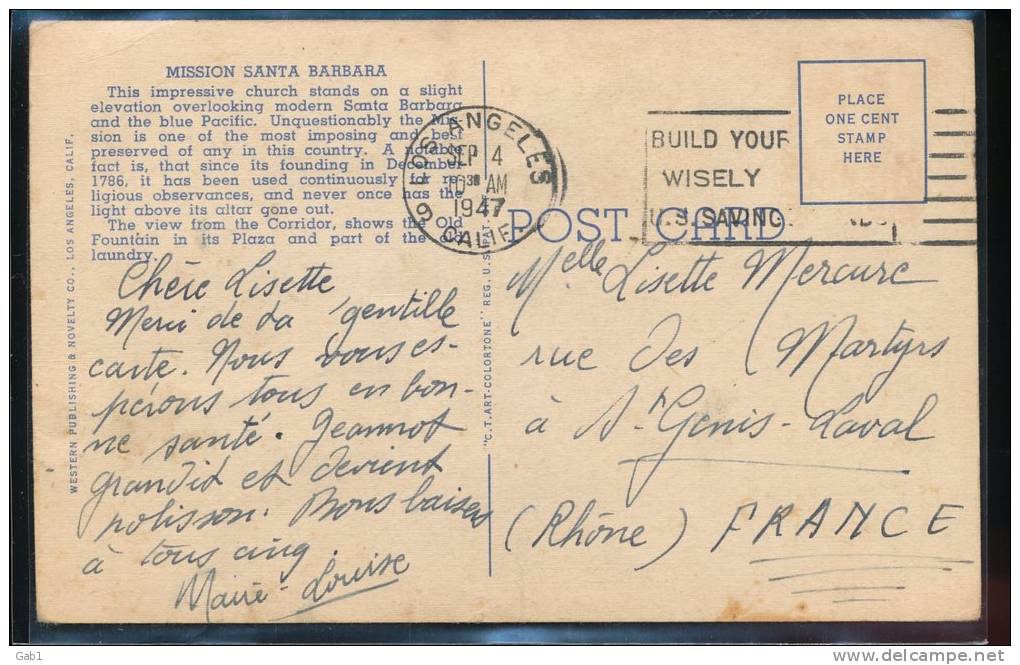 MISSION SANTA BARBARA
This impressive church stands on a slight
elevation overlooking modern Santa Barbara
and the blue Pacific. Unquestionably the Mis-
sion is one of the most imposing and best
preserved of any in this country. A notable
fact is, that since its founding in December
1786, it has been used continuously for re-
ligious observances, and never once has the
light above its altar gone out.
The view from the Corridor, shows the Old
Fountain in its Plaza and part of the old
laundry.
WESTERN PUBLISHING & NOVELTY CO., LOS ANGELES, CALIF.
Chère Lisette
Merci de ta gentille
carte. Nous vous es-
pérons tous en bon-
ne santé. Jeannot
grandit et devient
polisson. Bons baisers
à tous cinq.
Marie-Louise
"C.T. ART-COLORTONE" REG. U.S. PAT.
LOS ANGELES
SEP 4
10 30 AM
1947
CALIF.
BUILD YOUR
WISELY
U.S. SAVING
PLACE
ONE CENT
STAMP
HERE
POST CARD
Melle Lisette Mercure
rue des Martyrs
à St Genis-Laval
(Rhône) FRANCE
Gab1
delcampe.net